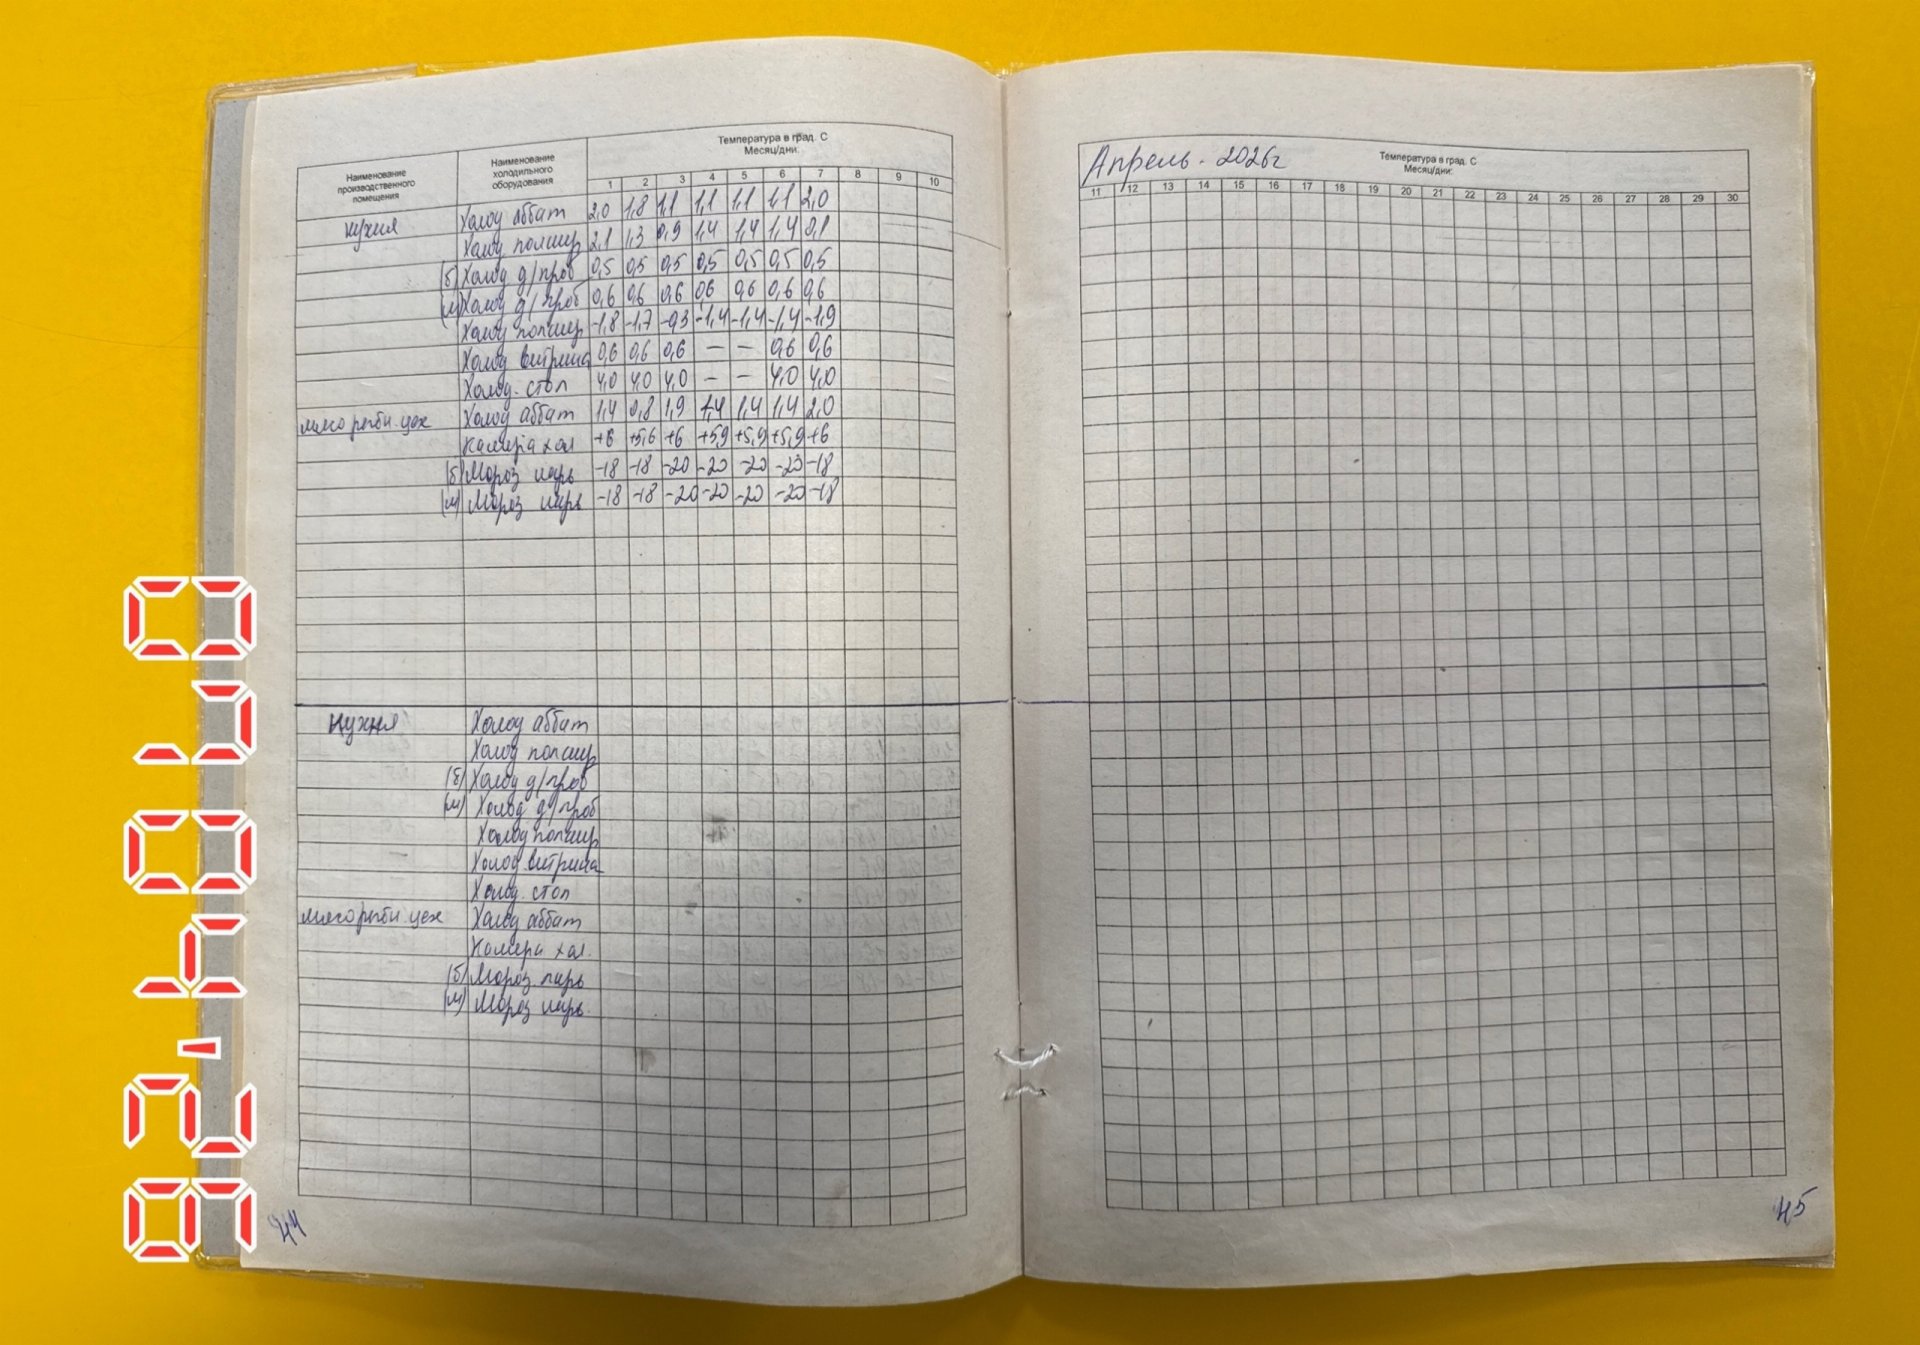 Наименование производственного помещения
Наименование холодильного оборудования
Температура в град. С
Месяц/дни:
1 2 3 4 5 6 7 8 9 10
кухня Холод аббат 2,0 1,8 1,1 1,1 1,1 1,1 2,0
Холод полаир 2,1 1,3 0,9 1,4 1,4 1,4 2,1
(б) Холод д/проб 0,5 0,5 0,5 0,5 0,5 0,5 0,5
(м) Холод д/проб 0,6 0,6 0,6 0,6 0,6 0,6 0,6
Холод полаир -1,8 -1,7 -0,3 -1,4 -1,4 -1,4 -1,9
Холод витрина 0,6 0,6 0,6 — — 0,6 0,6
Холод. стол 4,0 4,0 4,0 — — 4,0 4,0
мясо рыбн. цех Холод аббат 1,4 0,8 1,9 1,4 1,4 1,4 2,0
камера хол +6 +5,6 +6 +5,9 +5,9 +5,9 +6
(б) Мороз ларь -18 -18 -20 -20 -20 -20 -18
(м) Мороз ларь -18 -18 -20 -20 -20 -20 -18
кухня Холод аббат
Холод полаир
(б) Холод д/проб
(м) Холод д/проб
Холод полаир
Холод витрина
Холод. стол
мясо рыбн. цех Холод аббат
Камера хол.
(б) Мороз ларь
(м) Мороз ларь.
44
Апрель - 2026г
Температура в град. С
Месяц/дни:
11 12 13 14 15 16 17 18 19 20 21 22 23 24 25 26 27 28 29 30
45